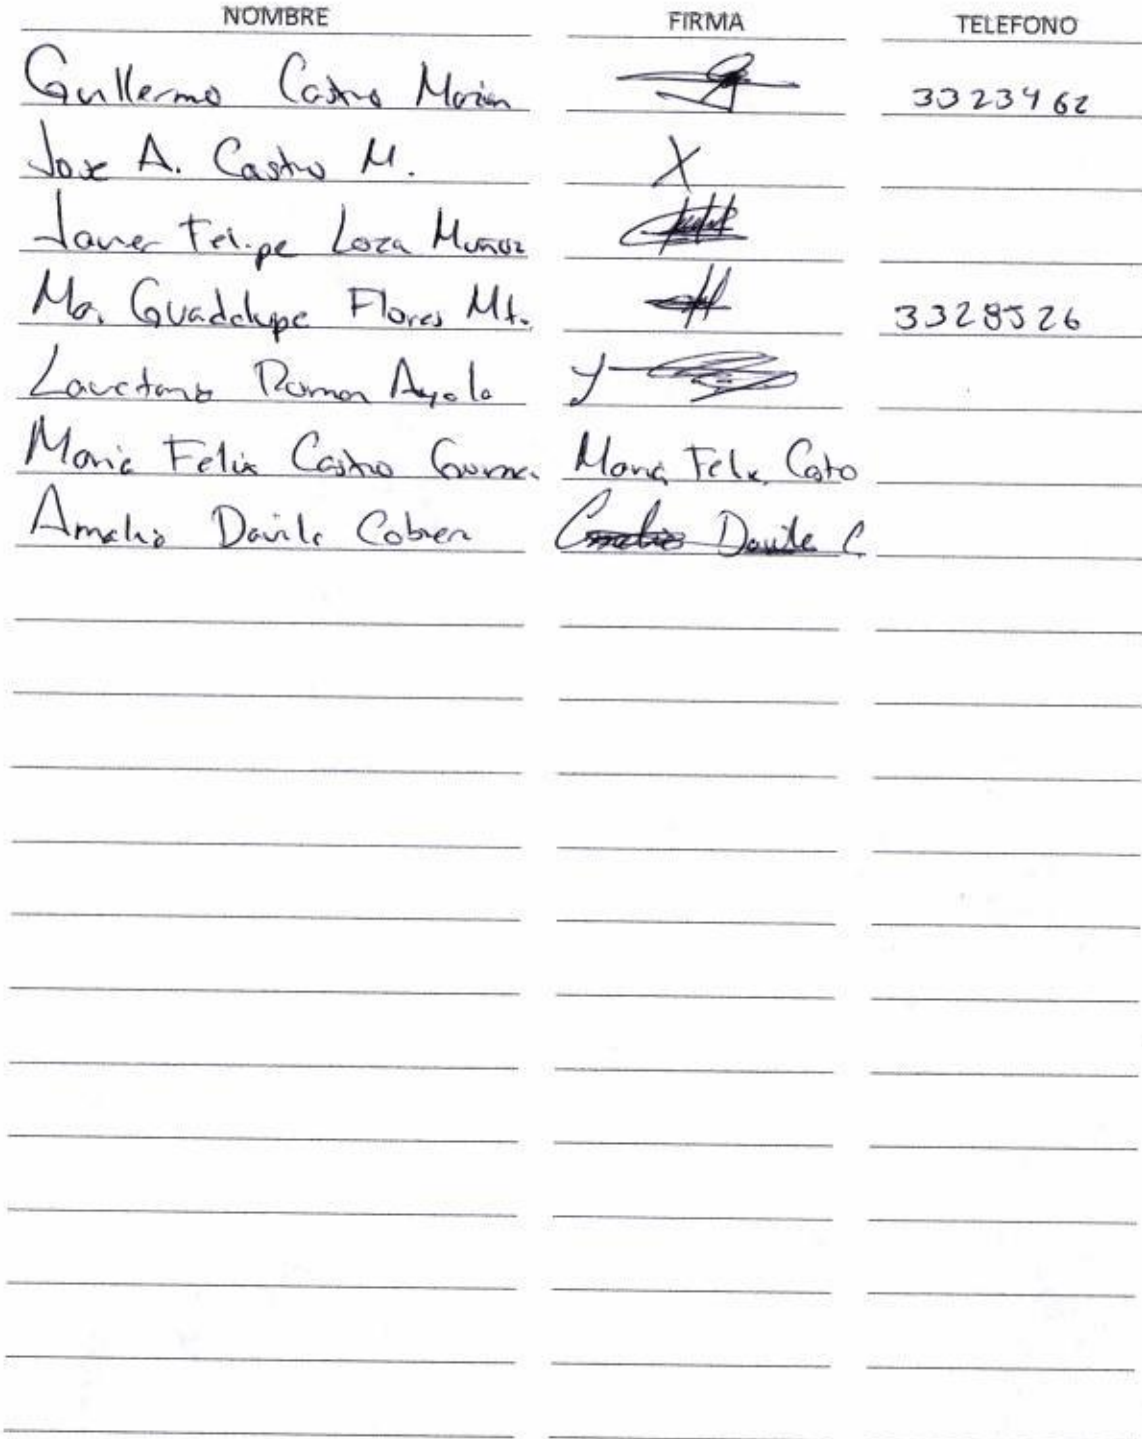 NOMBRE FIRMA TELEFONO
Guillermo Castro 3323462
Jose A. Castro M. X
Javier Felipe Loza Muñoz
Ma. Guadalupe Flores Mt. 3328526
Ramon Ayala
Maria Felix Castro Maria Felix Cato
Amelia Davila Davila C